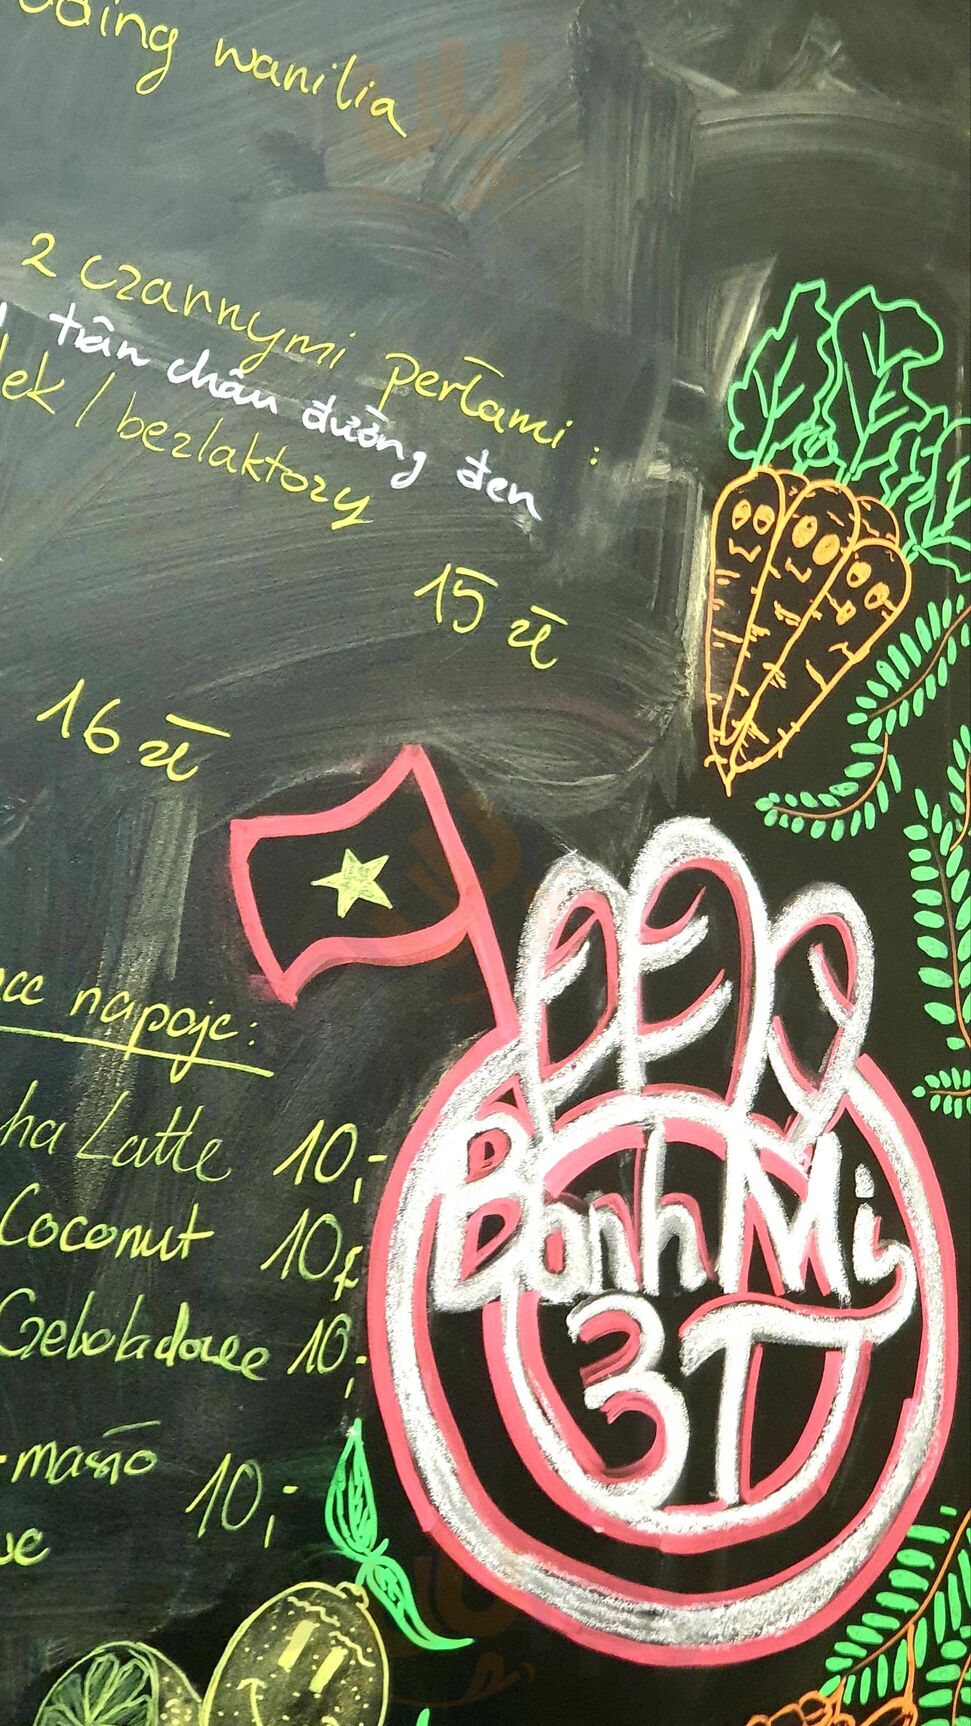 wanilia
z czarnymi perłami :
trân châu đường đen
/ bezlaktozy
15 zł
16 zł
napoje:
Latte 10,-
Coconut 10,-
10,-
-masło 10,-
Banh Mi
3T